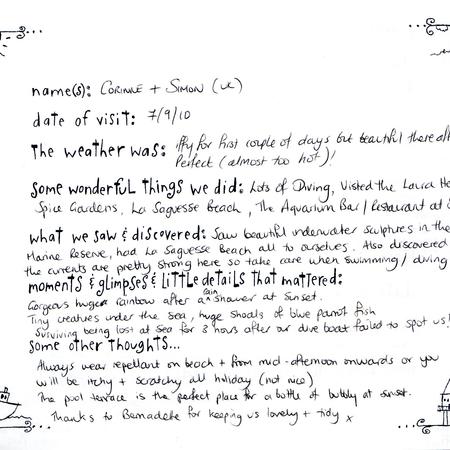 name(s): CORINNE + SIMON (UK)
date of visit: 7/9/10
The weather was: iffy for first couple of days but beautiful there
Perfect (almost too hot)!
Some wonderful things we did: Lots of Diving, Visited the Laura
Spice Gardens, La Sagesse Beach, The Aquarium Bar/Restaurant at
what we saw & discovered: Saw beautiful underwater sculptures in the
Marine Reserve, had La Sagesse Beach all to ourselves. Also discovered
the currents are pretty strong here so take care when swimming/diving
moments & glimpses & little details that mattered:
Gorgeous huge rainbow after rain shower at sunset.
Tiny creatures under the sea, huge shoals of blue parrot fish
Surviving being lost at sea for 3 hours after our dive boat failed to spot us!
Some other thoughts...
Always wear repellant on beach + from mid-afternoon onwards or you
will be itchy + scratchy all holiday (not nice)
The pool terrace is the perfect place for a bottle of bubbly at sunset.
Thanks to Bernadette for keeping us lovely + tidy x